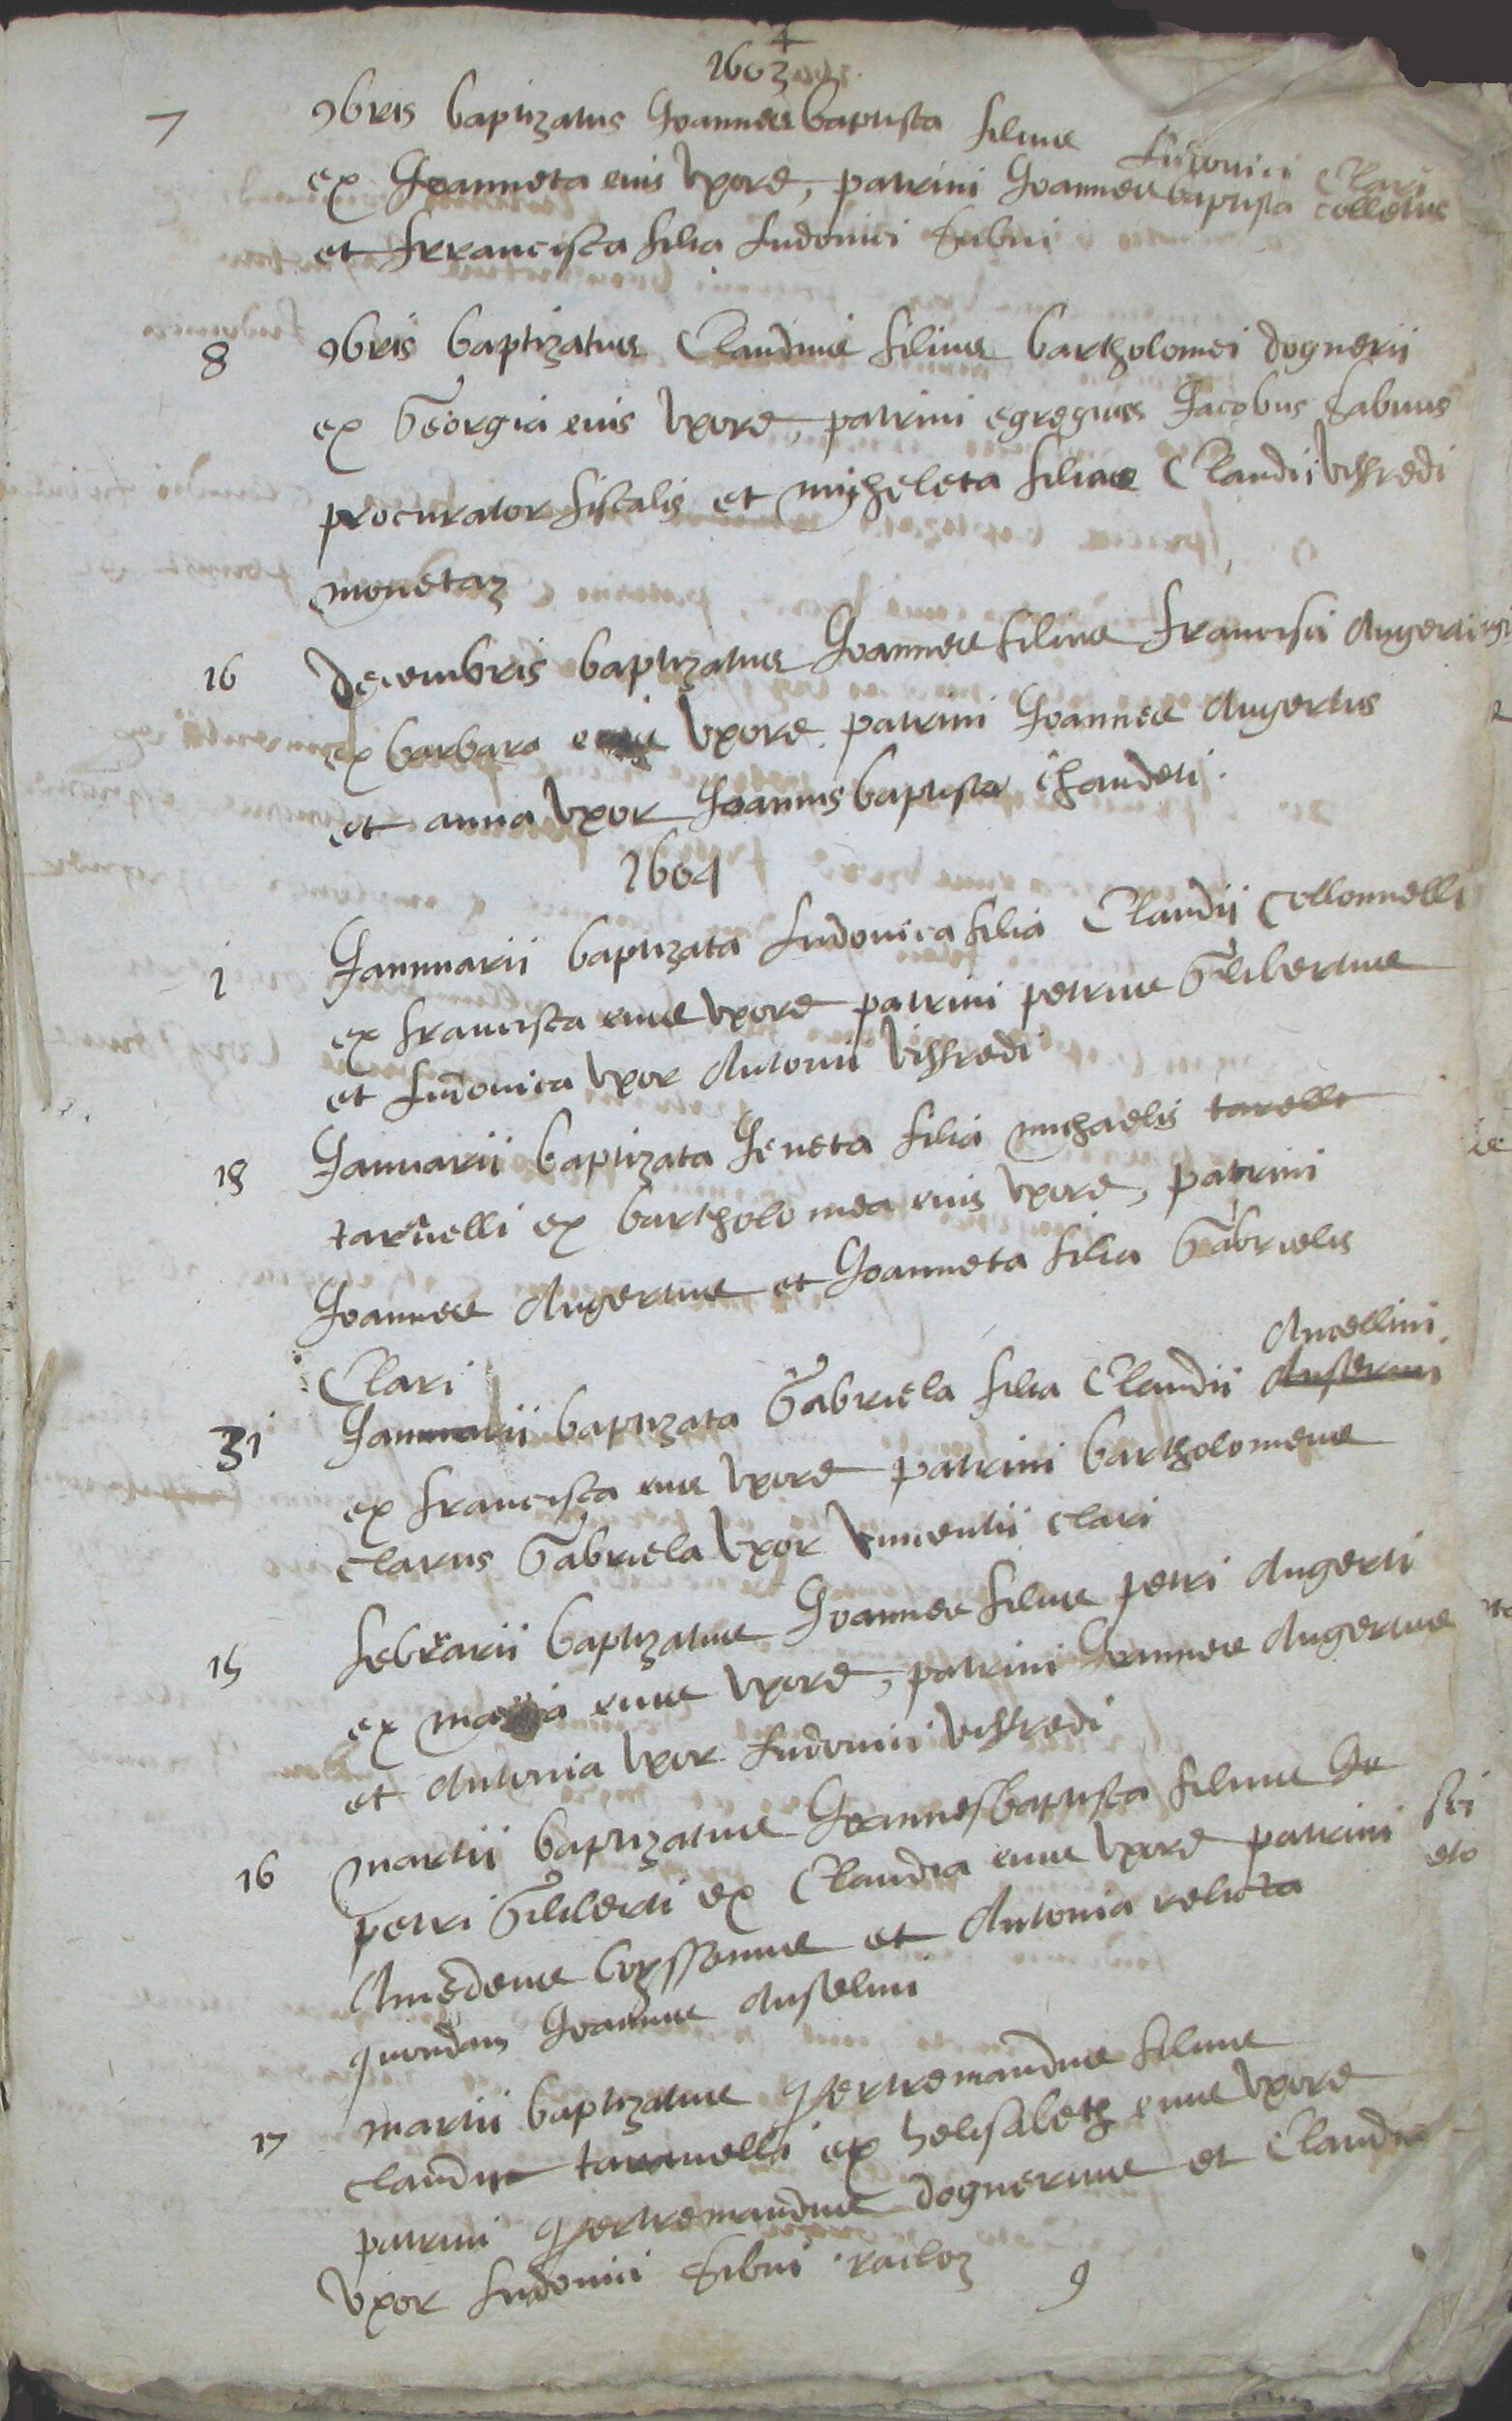 +
1603
7 9bris baptizatus Joannes baptista filius Ludovici Clari
ex Joanneta eius Uxore, patrini Joannes baptista colletus
et Francisca filia Ludovici
8 9bris baptizatus Claudius filius bartholomei dognerii
ex Georgia eius Uxore, patrini egregius Jacobus
procurator fiscalis et micheleta filia Claudii Viffredi
monetaz
16 decembris baptizatus Joannes filius Francisci Angerti
ex barbara eius Uxore patrini Joannes Angertus
et anna Uxor Joannis baptista Chanderi.
1604
1 Januarii baptizata Ludovica filia Claudii Collonnelli
ex francisca eius Uxore patrini petrus Gilibertus
et Ludovica Uxor Antonii Viffredi
18 Januarii baptizata Jeneta filia michaelis tarelli
taruelli ex bartholomea eius Uxore, patrini
Joannes Angertus et Joanneta filia Gabrielis
Clari
Ancellini
31 Januarii baptizata Gabriela filia Claudii
ex francisca eius Uxore patrini bartholomeus
clarus Gabriela Uxor Vincentii clari
15 febrarii baptizatus Joannes filius petri Angerti
ex maria eius Uxore, patrini Joannes Angertus
et Antonia Uxor Ludovici Viffredi
16 martii baptizatus Joannes baptista filius Jo
petri Giliberti ex Claudia eius Uxore patrini
Amedeus et Antonia relicta
quondam Joannis Anselmi
17 martii baptizatus filius
claudii ex helisabeth eius Uxore
patrini dognerius et Claudia
Uxor Ludovici racloz
9